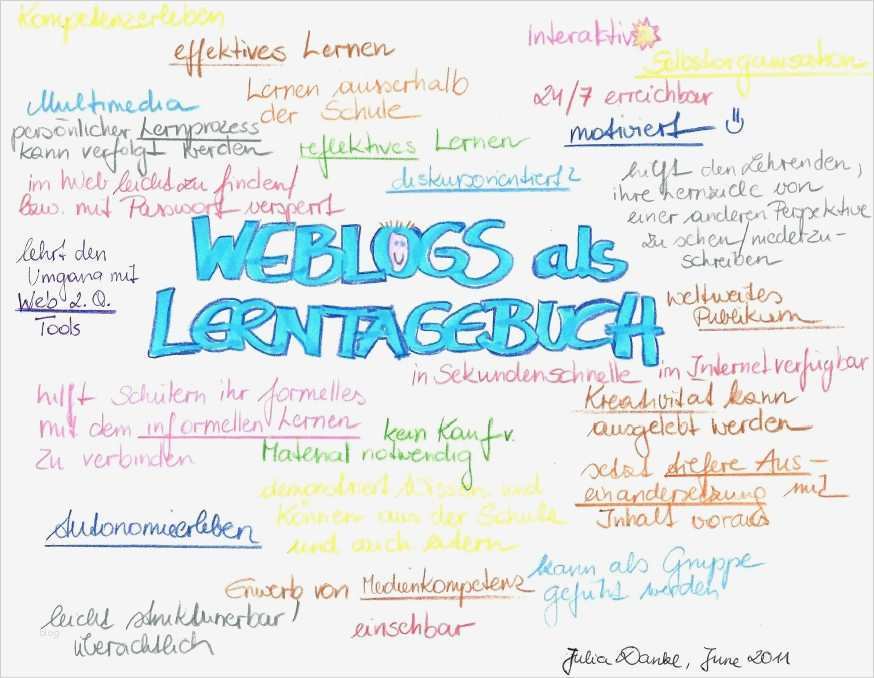 Kompetenzerleben
effektives Lernen
Interaktiv
Selbstorganisation
Multimedia
Lernen ausserhalb
der Schule
24/7 erreichbar
persönlicher Lernprozess
kann verfolgt werden
reflektives Lernen
motiviert
im Web leicht zu finden/
bzw. mit Passwort versperrt
diskursorientiert
hilft den Lehrenden,
ihre Lernziele von
einer anderen Perspektive
zu sehen/niederzu-
schreiben
WEBLOGS als
LERNTAGEBUCH
lehrt den
Umgang mit
Web 2.0.
Tools
weltweites
Publikum
in Sekundenschnelle im Internet verfügbar
hilft Schülern ihr formelles
mit dem informellen Lernen
zu verbinden
kein Kauf v.
Material notwendig
Kreativität kann
ausgelebt werden
setzt tiefere Aus-
einandersetzung mit
Inhalt voraus
demonstriert Wissen und
Können aus der Schule
und auch extern
Autonomieerleben
kann als Gruppe
geführt werden
Erwerb von Medienkompetenz
leicht strukturierbar/
übersichtlich
einsehbar
blog
Julia Dankl, June 2011